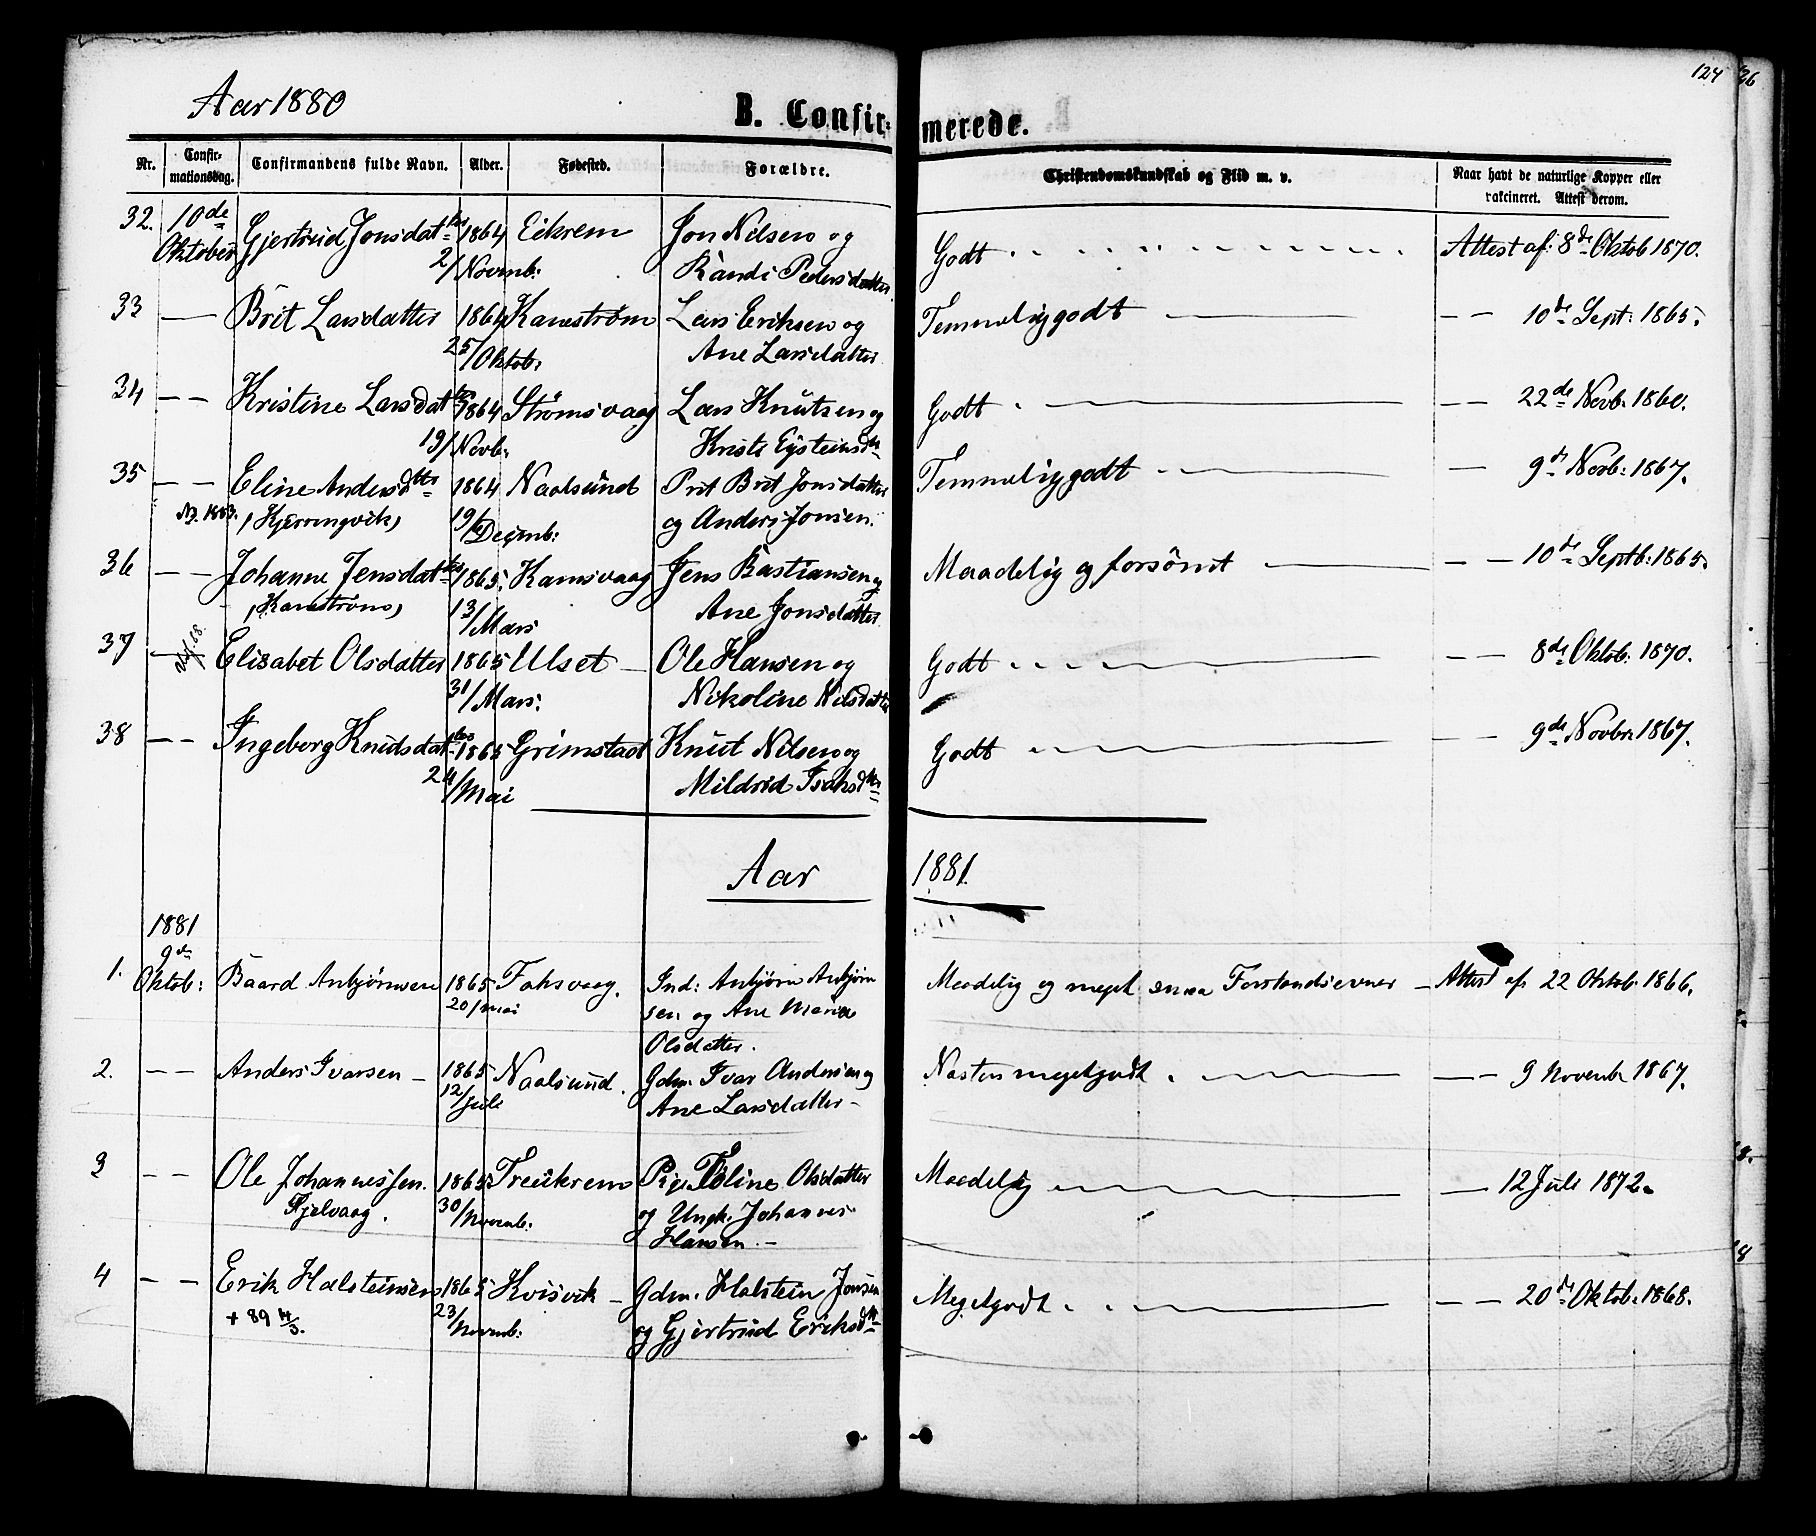 124 26
Aar 1880
B. Confirmerede.
Nr. Confirmationsdag. Confirmandens fulde Navn. Alder. Fødested. Forældre. Christendomskundskab og Flid m. v. Naar havt de naturlige Kopper eller vakcineret. Attest derom.
32. 10de Gjertrud Jonsdatter 1864 Eikrem Jon Nilsen og Godt Attest af: 8de Oktob 1870.
Oktober 2/Novmb: Randi Pedersdatter
33 — Brit Larsdatter 1864 Kanestrøm Lars Eriksen og Temmelig godt — — 10de Sept: 1865.
25/Oktob: Ane Larsdatter
34 — — Kristine Larsdatter 1864 Strømsvaag Lars Knutsen og Godt — — 22de Novb. 1860.
19/Novb: Kristi Eysteinsdtr
35 — — Eline Andersdtter 1864 Naalsund Prit Brit Jonsdatter Temmelig godt — 9de Novb: 1867.
1883. (Kjerringvik) 19/Decmb: og Anders Jonsen.
36 — — Johanne Jensdatter 1865. Kamsvaag Jens Bastiansen og Maadelig og forsømt — — 10de Septb: 1865.
(Kanestrøm) 13/Mars Ane Jonsdatter
37 — Elisabet Olsdatter 1865 Ulset — Ole Hansen og Godt — — 8de Oktob: 1870.
31/Mars: Nikoline Nilsdatter
38 — — Ingeborg Knudsdatter 1865 Grimstad Knut Nilsen og Godt — — 9de Novbr 1867.
24/Mai Mildrid Isaksdtr
Aar 1881.
1881
9de
1. Oktob: Baard Anbjørnsen 1865 Foksvaag. Ind: Anbjørn Anbjørn Maadelig og meget Forstandsevner — Attest af 22 Oktob. 1866.
20/mai sen og Ane Marie
Olsdatter.
2. — — Anders Ivarsen — 1865 Naalsund. Gdm. Ivar Andersen og Næsten megetgodt — — 9 Novemb 1867.
12/Juli Ane Larsdatter —
3 — — Ole Johannessen. 1865 Treekrem Pige Oline Olsdatter Maadelig — 12 Juli 1872.
Fjelvaag. 30/Novemb: og Ungk. Johannes
Hansen. —
4 — — Erik Halsteinsen 1865 Kvisvik — Gdm. Halstein Jonsen Megetgodt — — 20de Oktob: 1868.
+ 89 4/3. 23/Novmb: og Gjertrud Eriksdtr